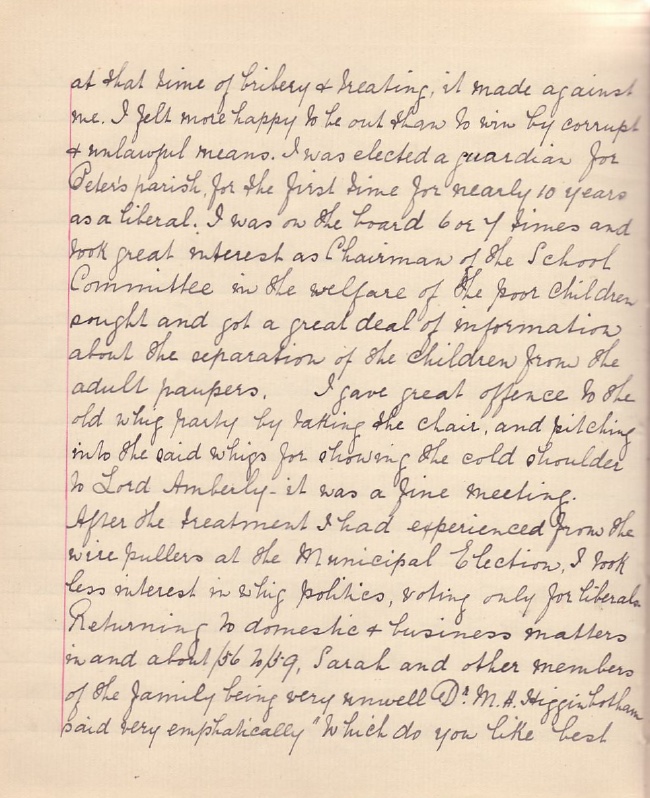 at that time of bribery & treating, it made against
me. I felt more happy to be out than to win by corrupt
& unlawful means. I was elected a guardian for
Peter's parish, for the first time for nearly 10 years
as a liberal. I was on the board 6 or 7 times and
took great interest as Chairman of the School
Committee in the welfare of the poor children
sought and got a great deal of information
about the separation of the children from the
adult paupers. I gave great offence to the
old whig party by taking the chair, and pitching
into the said whigs for showing the cold shoulder
to Lord Amberly - it was a fine meeting.
After the treatment I had experienced from the
wire pullers at the Municipal Election, I took
less interest in whig politics, voting only for liberals
Returning to domestic & business matters
in and about /56 to /59, Sarah and other members
of the family being very unwell Dr. M.H. Higginbotham
said very emphatically "Which do you like best